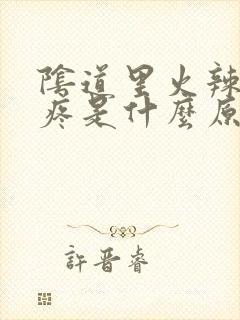 陰道里火辣
疼是什麼原
許晋睿